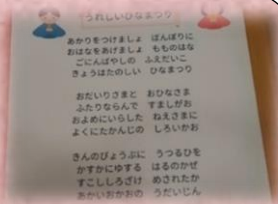 うれしいひなまつり
あかりをつけましょ　ぼんぼりに
おはなをあげましょ　もものはな
ごにんばやしの　ふえだいこ
きょうはたのしい　ひなまつり
おだいりさまと　おひなさま
ふたりならんで　すましがお
およめにいらした　ねえさまに
よくにたかんじの　しろいかお
きんのびょうぶに　うつるひを
かすかにゆする　はるのかぜ
すこししろざけ　めされたか
あかいおかおの　うだいじん